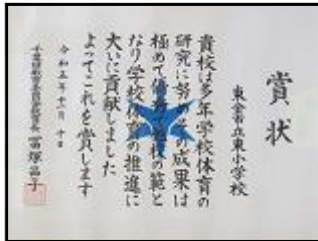 賞状
東金市立東小学校
貴校は多年学校体育の
研究に努めその成果は
極めて優秀で他校の範と
なり学校体育の推進に
大いに貢献しました
よってこれを賞します
令和五年十一月十日
千葉県教育委員会教育長 冨塚昌子